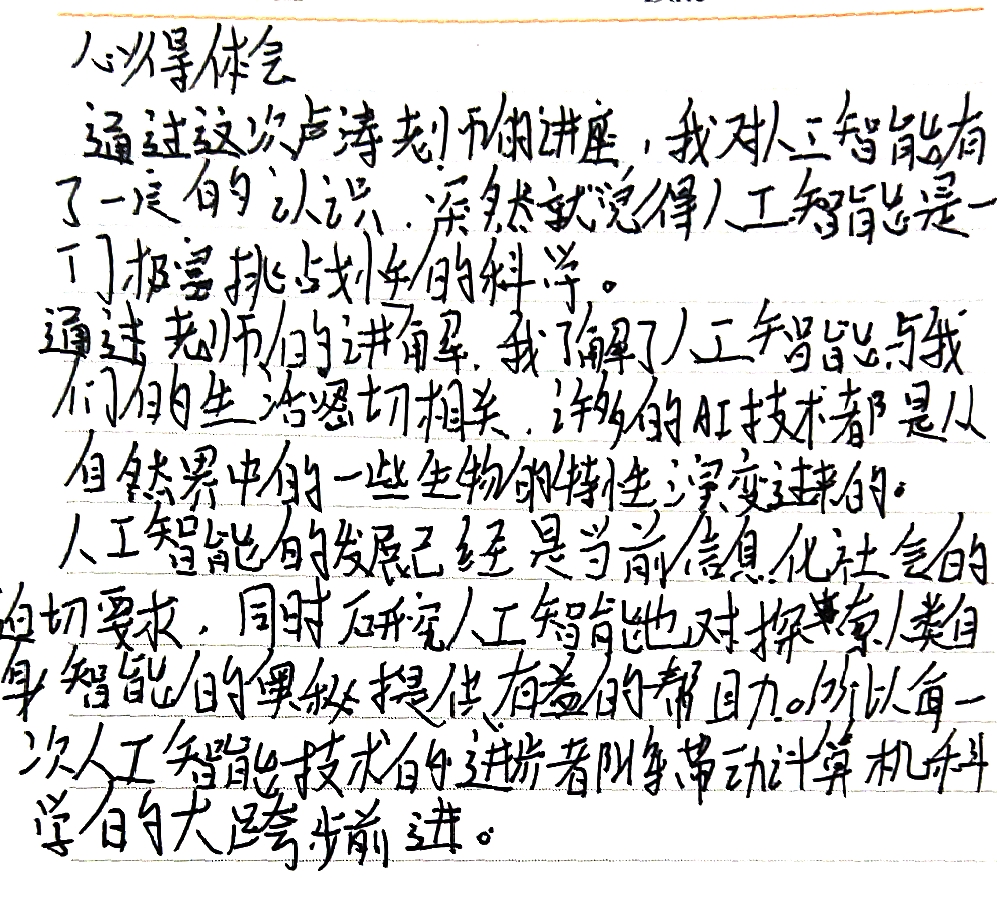 心得体会
通过这次卢涛老师的讲座，我对人工智能有
了一定的认识，深然就觉得人工智能是一
门极富挑战性的科学。
通过老师的讲解，我了解了人工智能与我
们的生活密切相关，许多的AI技术都是从
自然界中的一些生物的特性演变过来的。
人工智能的发展已经是当前信息化社会的
迫切要求，同时研究人工智能也对探索人类自
身智能的奥秘提供有益的帮助。所以每一
次人工智能技术的进步都将带动计算机科
学的大跨步前进。